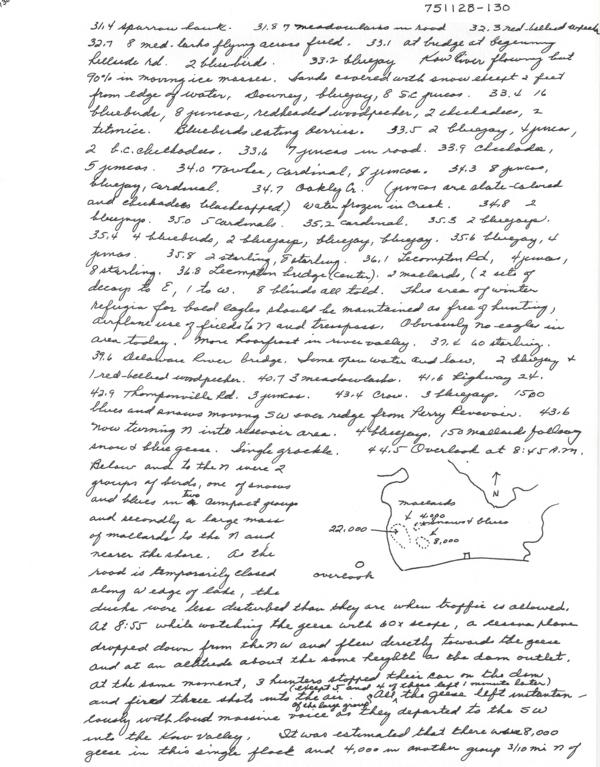 751128-130
31.4 sparrow hawk. 31.8 7 meadowlarks in road 32.3 red-bellied
32.7 8 med. larks flying across field. 33.1 at bridge at beginning
hillside rd. 2 bluebirds. 33.2 bluejay Kaw River flowing but
90% in moving ice masses. Sands covered with snow except 2 feet
from edge of water, Downey, bluejay, 8 S.C. juncos. 33.4 16
bluebirds, 8 juncos, redheaded woodpecker, 2 chickadees, 2
titmice. Bluebirds eating berries. 33.5 2 bluejay, 4 juncos,
2 b.c. chickadees. 33.6 7 juncos in road. 33.9 Chickade,
5 juncos. 34.0 Towhee, Cardinal, 8 juncos. 34.3 8 juncos,
bluejay, cardinal. 34.7 Oakly Cr. (juncos are slate-colored
and chickadees blackcapped) water frozen in Creek. 34.8 2
bluejays. 35.0 5 cardinals. 35.2 cardinal. 35.3 2 bluejays.
35.4 4 bluebirds, 2 bluejays, bluejay, bluejay. 35.6 bluejay, 4
juncos. 35.8 2 starling, 8 starling. 36.1 Lecompton Rd, 4 juncos,
8 starling. 36.8 Lecompton bridge (center). 2 mallards, (2 sets of
decoys to E, 1 to W. 8 blinds all told. This area of winter
refugia for bald eagles should be maintained as free of hunting,
airplane use of fields to N and trespass. Obviously no eagles in
area today. More hoarfrost in river valley. 37.4 60 starling.
39.6 Delaware River bridge. Some open water and low. 2 bluejay &
1 red-bellied woodpecker. 40.7 3 meadowlarks. 41.6 Highway 24.
42.9 Thompsonville Rd. 3 juncos. 43.4 Crow. 3 bluejays. 1500
blues and snows moving SW over ridge from Perry Resevoir. 43.6
now turning N into resevoir area. 4 bluejays, 150 mallards following
snow & blue geese. Single grackle. 44.5 Overlook at 8:45 A.M.
Below and to the N were 2
groups of birds, one of snows
and blues in two compact groups
and secondly a large mass
of mallards to the N and
nearer the shore. As the
road is temporarily closed
along W edge of lake, the
N
mallards
4,000
snows & blues
22,000
8,000
overlook
ducks were less disturbed than they are when traffic is allowed.
At 8:55 while watching the geese with 60x scope, a cessna plane
dropped down from the NW and flew directly towards the geese
and at an altitude about the same heighth as the dam outlet.
At the same moment, 3 hunters stopped their car on the dam
and fired three shots into the air. (except 5 and 4 of these left 1 minute later) All of the large group the geese left instantan-
eously with loud massive voice as they departed to the SW
into the Kaw Valley. It was estimated that there were 8,000
geese in this single flock and 4,000 in another group 3/10 mi N of